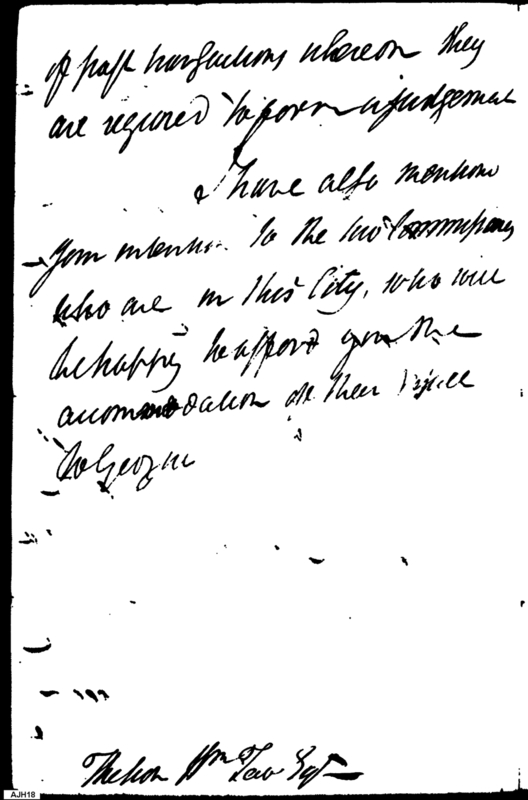 of past transactions whereon they
are required to form a judgement
I have also mentioned
your intention to the two Commissioners
who are in this City, who will
be happy to afford you the
accommodation of their Vessel
to Georgia
The Hon Wm Few Esqr
AJH18